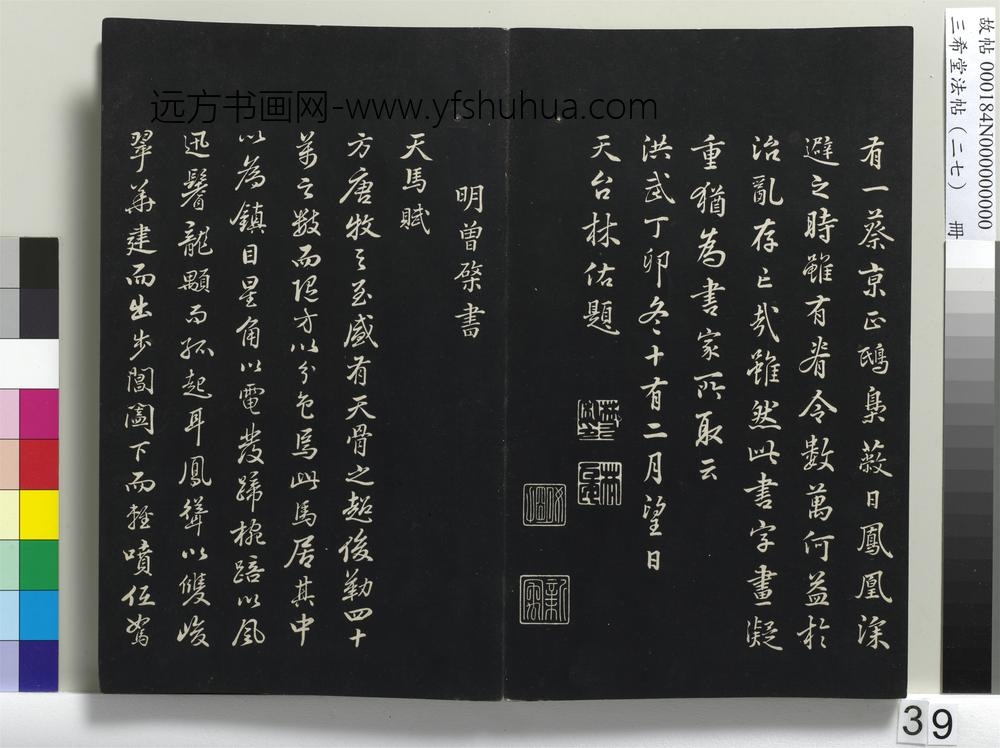 有一蔡京正鴟梟蔽日鳳凰深
避之時雖有眷令數萬何益於
治亂存亡哉雖然此書字畫凝
重猶為書家所取云
洪武丁卯冬十有二月望日
天台林佑題
明曾棨書
天馬賦
方唐牧之至盛有天骨之超俊勒四十
萬之數而隨方以分色焉此馬居其中
以為鎮目星角以電發蹄椀踣以風
迅鬐龍顒而孤起耳鳳聳以雙峻
翠華建而出步閶闔下而輕噴低駑
远方书画网-www.yfshuhua.com
故帖 000184N000000000
三希堂法帖（二七） 冊
39